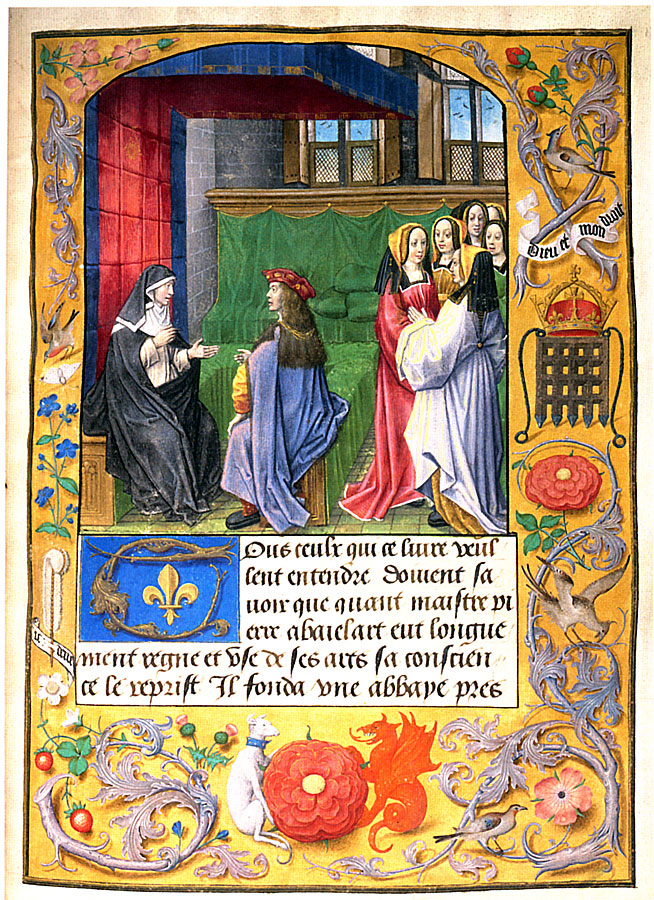 Dieu et mon droit
Ous ceulx qui ce livre veul
lent entendre doivent sa
voir que quant maistre pi
erre abaielart eut longue
ment regne et vse de ses arts sa conscien
ce le reprist Il fonda vne abbaye pres